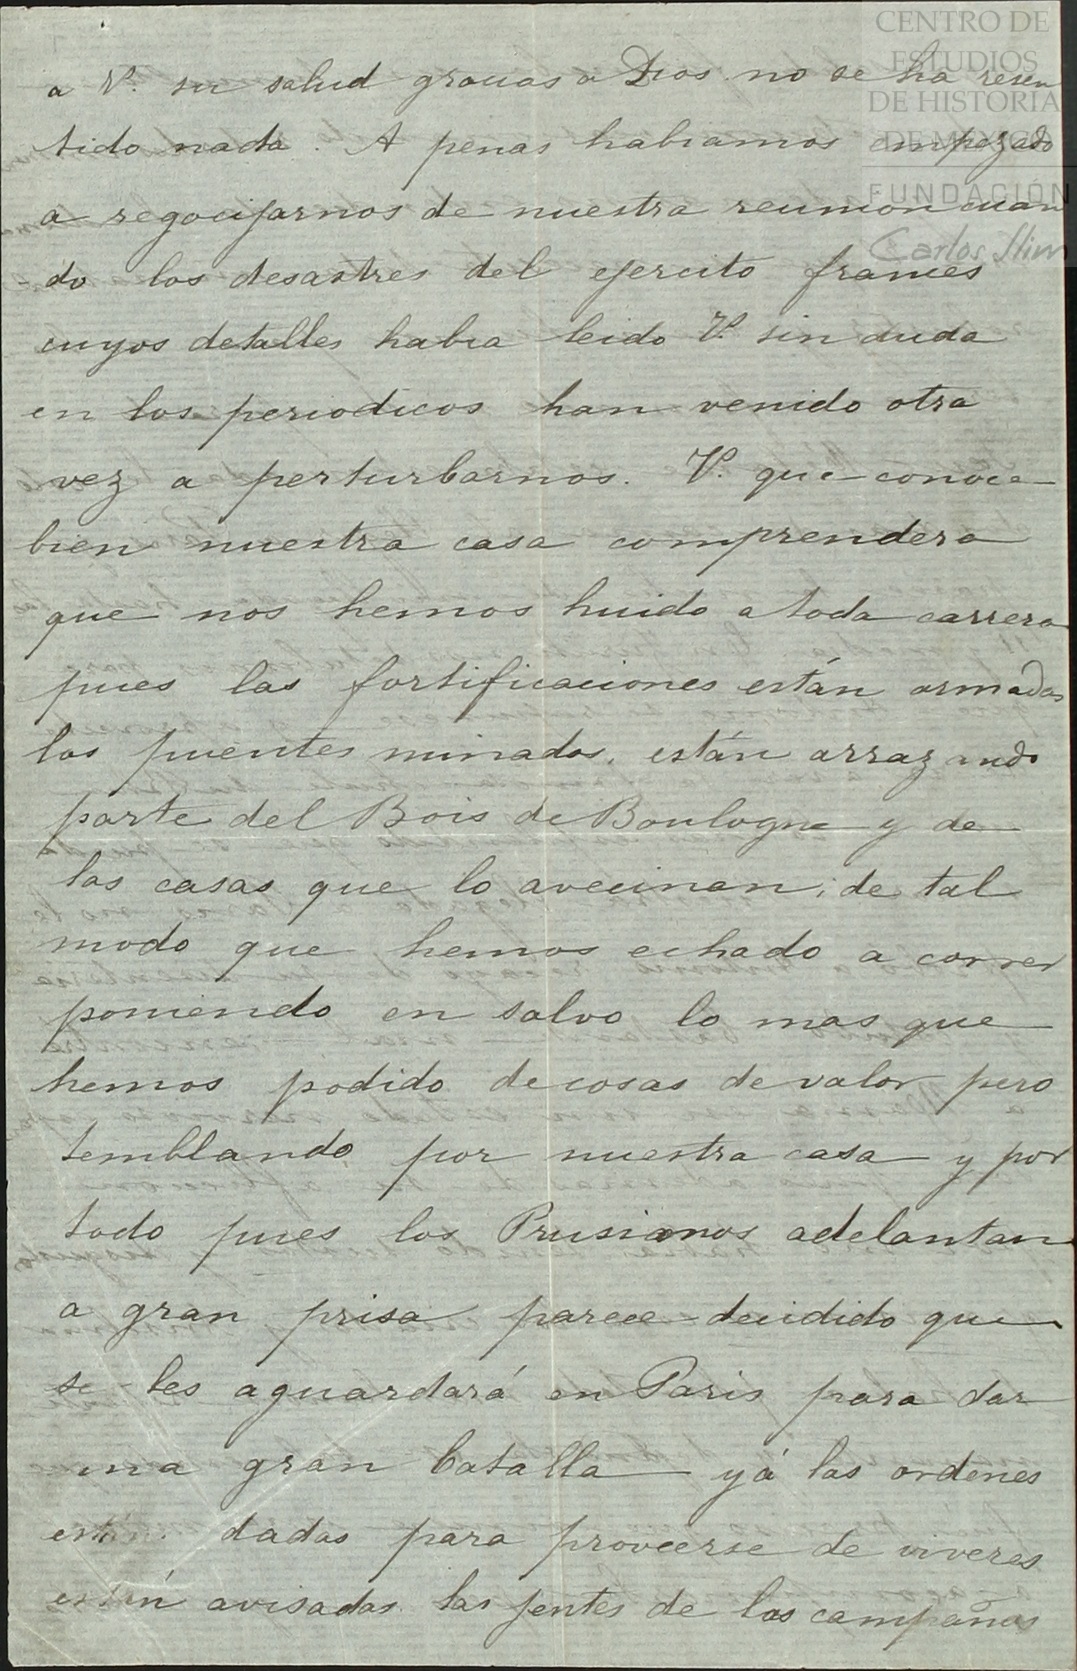 CENTRO DE
ESTUDIOS
DE HISTORIA
DE MÉXICO
FUNDACIÓN
Carlos Slim
a V. su salud gracias a Dios no se ha resen
tido nada. A penas habiamos empezado
a regocijarnos de nuestra reunion cuan
do los desastres del ejercito frances
cuyos detalles habra leido V. sin duda
en los periodicos han venido otra
vez a perturbarnos. V. que conoce
bien nuestra casa comprendera
que nos hemos huido a toda carrera
pues las fortificaciones están armadas
los puentes minados, están arrazando
parte del Bois de Boulogne y de
las casas que lo avecinan; de tal
modo que hemos echado a correr
poniendo en salvo lo mas que
hemos podido de cosas de valor pero
temblando por nuestra casa y por
todo pues los Prusianos adelantan
a gran prisa parece decidido que
se les aguardará en Paris para dar
una gran batalla yá las ordenes
están dadas para proveerse de viveres
están avisadas las jentes de las campañas